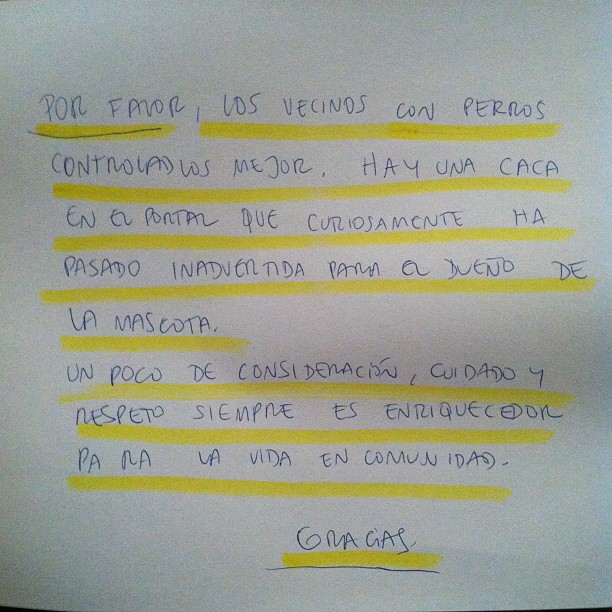 POR FAVOR, LOS VECINOS CON PERROS
CONTROLADLOS MEJOR. HAY UNA CACA
EN EL PORTAL QUE CURIOSAMENTE HA
PASADO INADVERTIDA PARA EL DUEÑO DE
LA MASCOTA.
UN POCO DE CONSIDERACIÓN, CUIDADO Y
RESPETO SIEMPRE ES ENRIQUECEDOR
PARA LA VIDA EN COMUNIDAD.
GRACIAS.